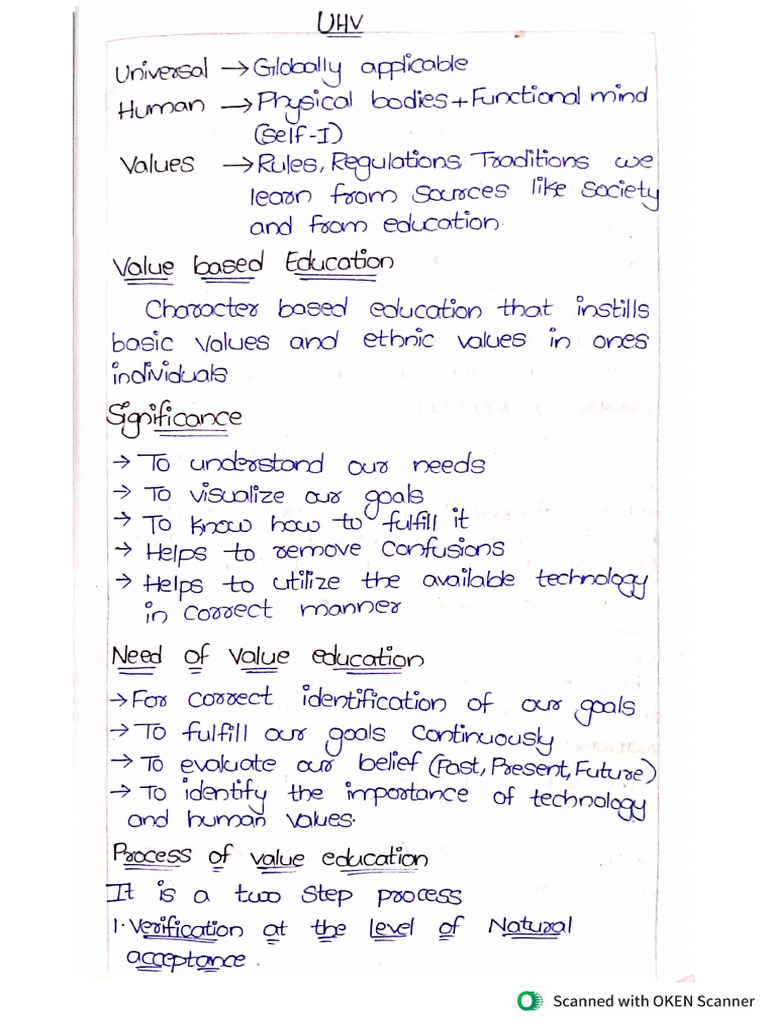 UHV
Universal → Globally applicable
Human → Physical bodies + Functional mind
(Self-I)
Values → Rules, Regulations, Traditions we
learn from sources like society
and from education.
Value based Education
Character based education that instills
basic values and ethnic values in ones
individuals
Significance
→ To understand our needs
→ To visualize our goals
→ To know how to fulfill it
→ Helps to remove confusions
→ Helps to utilize the available technology
in correct manner
Need of value education
→ For correct identification of our goals
→ To fulfill our goals continuously
→ To evaluate our belief (Past, Present, Future)
→ To identify the importance of technology
and human values.
Process of value education
It is a two step process
1. Verification at the level of Natural
acceptance.
Scanned with OKEN Scanner